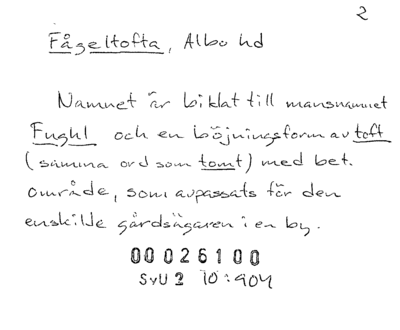 2
Fågeltofta, Albo hd
Namnet är biklat till mansnamnet
Fughl och en böjningsform av toft
(samma ord som tomt) med bet.
område, som avpassats för den
enskilde gårdsägaren i en by.
00026100
SvU 2 10:904